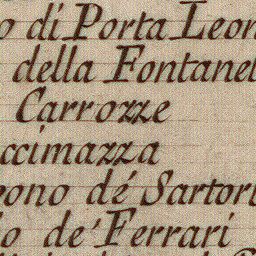 o di Porta Leon
della Fontanel
Carrozze
ccimazza
eono dé Sartori
io de' Ferrari